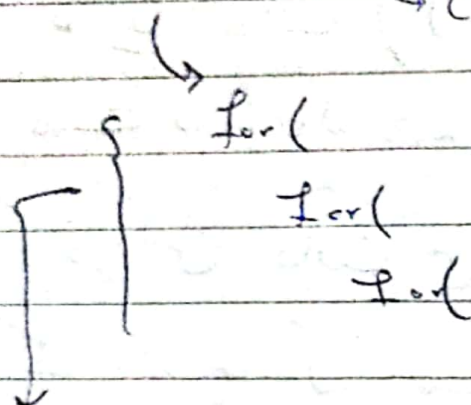 for(
for(
for(